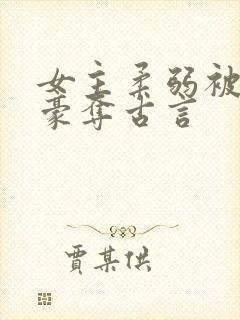 女主柔弱被
豪奪古言
賈某供